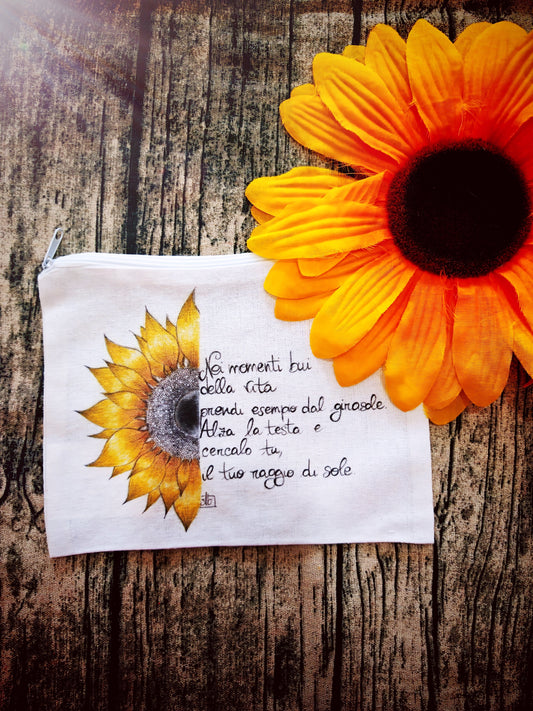 Nei momenti bui
della vita
prendi esempo dal girasole.
Alza la testa e
cercalo tu,
il tuo raggio di sole